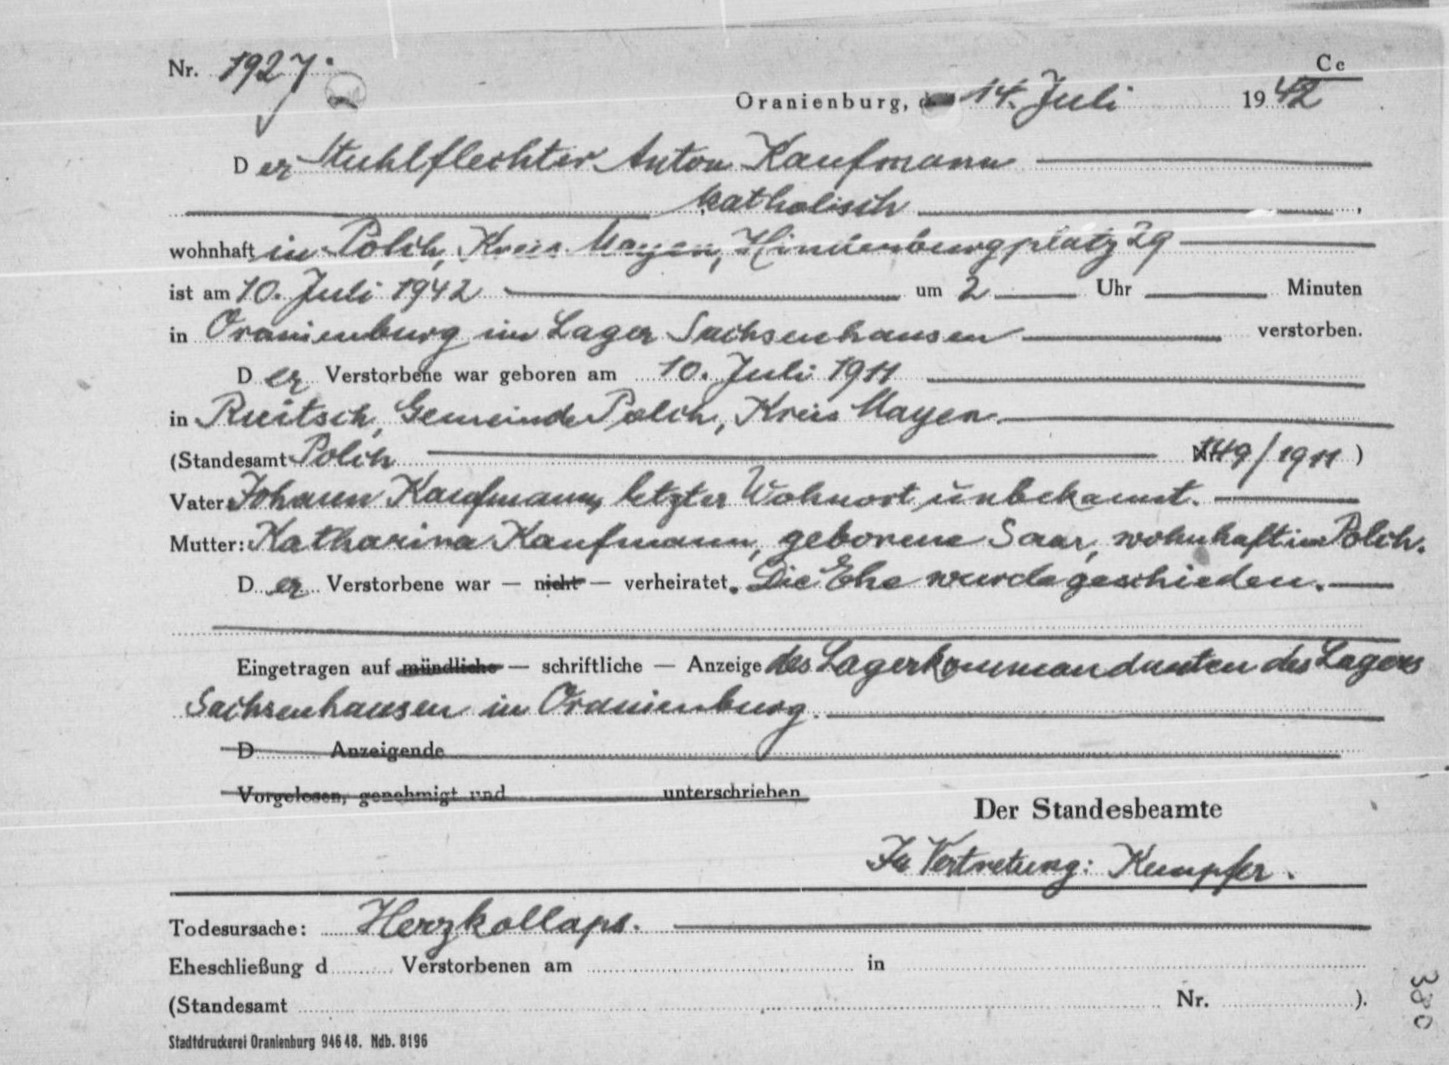 Cc
Nr. 1927.
Oranienburg, den 14. Juli 1942
Der Stuhlflechter Anton Kaufmann
katholisch,
wohnhaft in Polch, Kreis Mayen, Hindenburgplatz 29
ist am 10. Juli 1942 um 2 Uhr Minuten
in Oranienburg im Lager Sachsenhausen verstorben.
Der Verstorbene war geboren am 10. Juli 1911
in Ruitsch, Gemeinde Polch, Kreis Mayen
(Standesamt Polch 49/1911)
Vater: Johann Kaufmann, letzter Wohnort unbekannt.
Mutter: Katharina Kaufmann, geborene Saar, wohnhaft in Polch.
Der Verstorbene war — nicht — verheiratet. Die Ehe wurde geschieden.
Eingetragen auf mündliche — schriftliche — Anzeige des Lagerkommandanten des Lagers
Sachsenhausen in Oranienburg.
D Anzeigende
Vorgelesen, genehmigt und unterschrieben
Der Standesbeamte
In Vertretung: Kempfer.
Todesursache: Herzkollaps.
Eheschließung d Verstorbenen am in
(Standesamt Nr. ).
380
Stadtdruckerei Oranienburg 946 48. Ndb. 8196